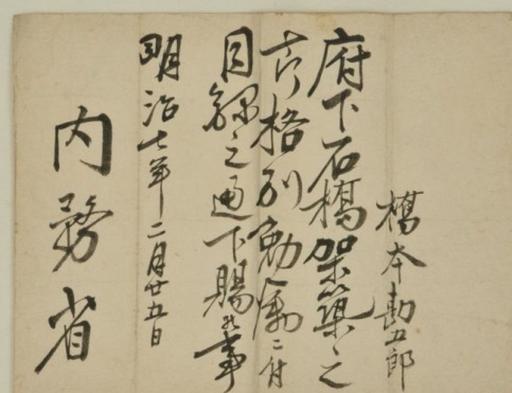 橋本勘五郎
府下石橋架築之
節格別勉励ニ付
目録之通下賜候事
明治七年二月廿五日
内務省